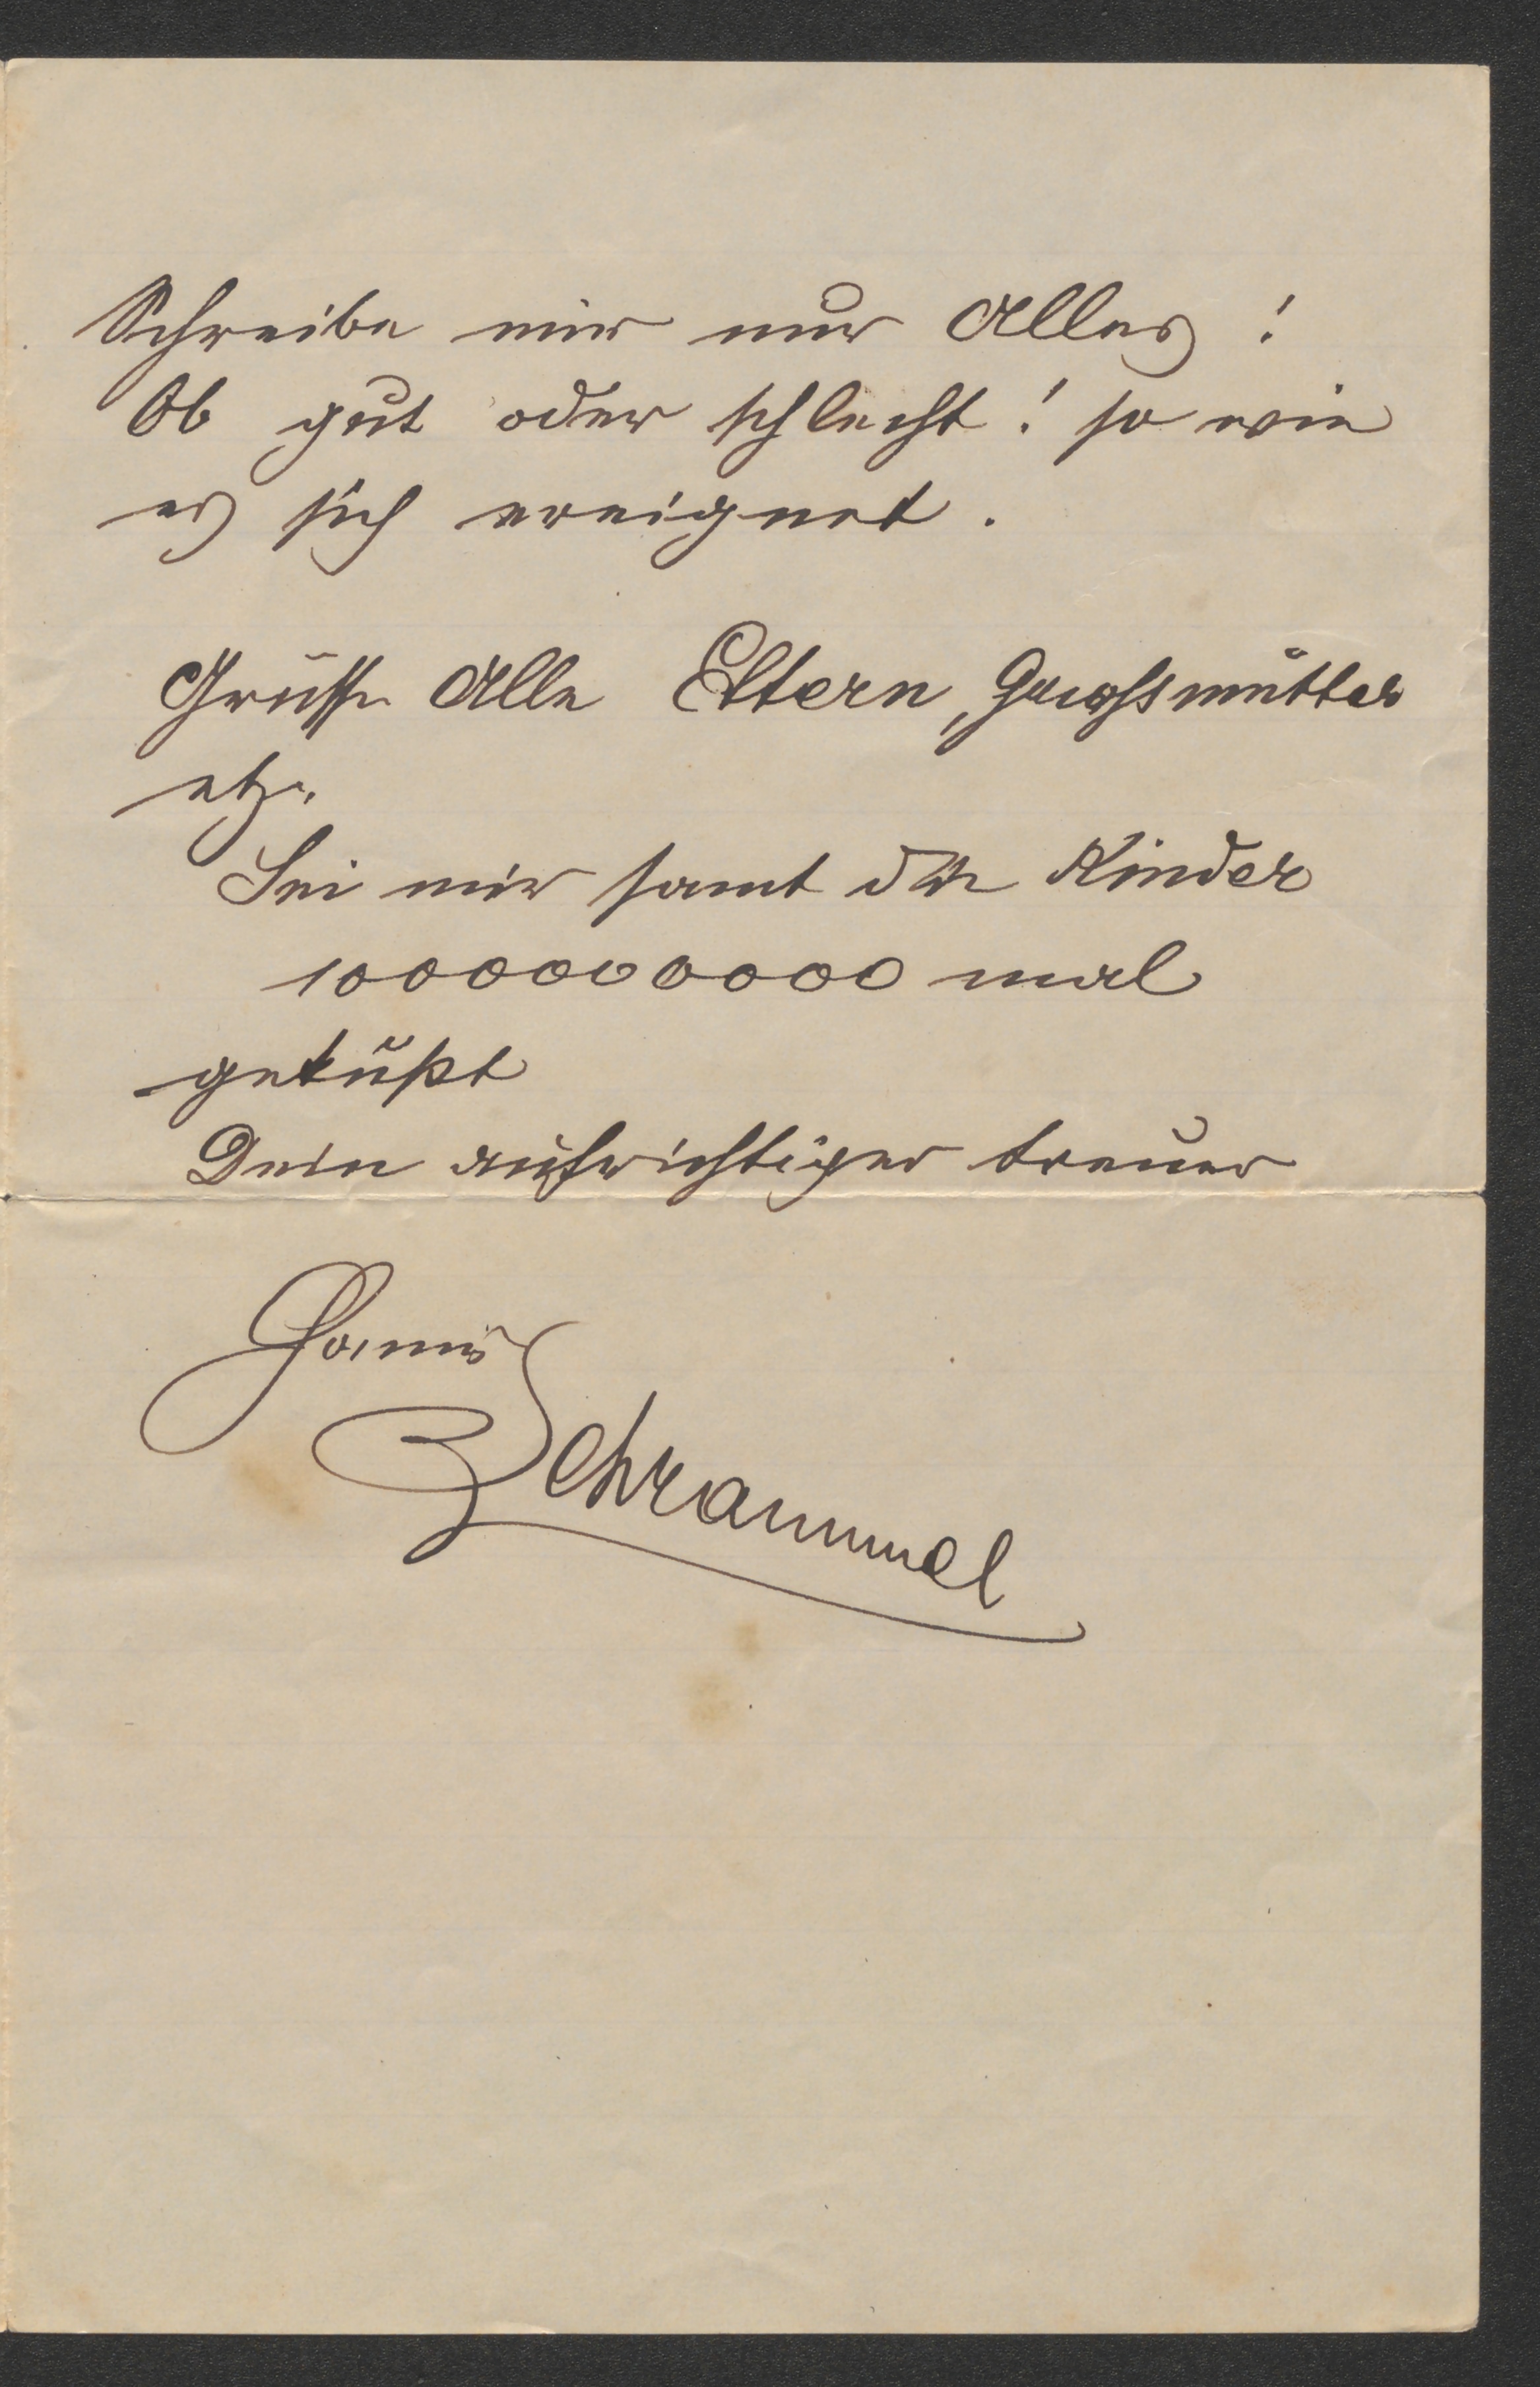 Schreibe mir nur Alles!
Ob gut oder schlecht! so wie
es sich ereignet.
Grüsse Alle Eltern, Grossmutter
etz.
Sei mir samt den Kinder
1000000000 mal
geküßt
Dein aufrichtiger treuer
Hanns
Schrammel